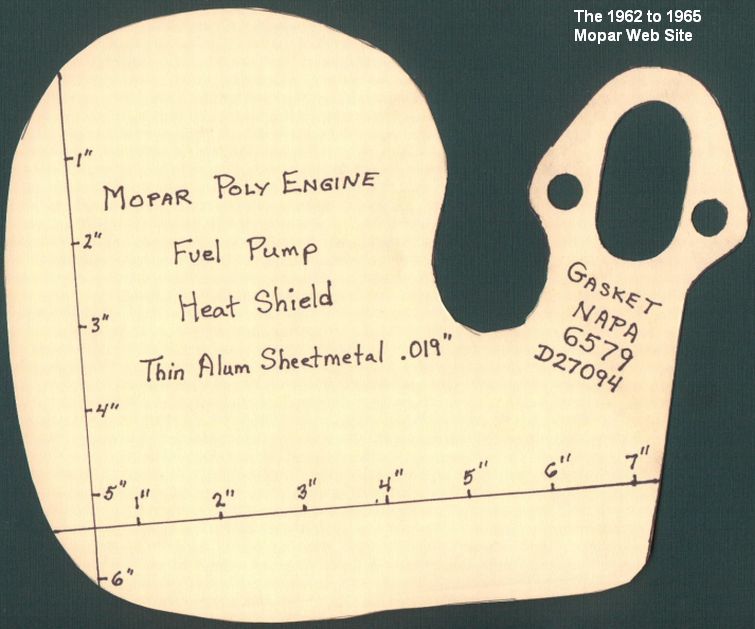 The 1962 to 1965
Mopar Web Site
MOPAR POLY ENGINE
Fuel Pump
Heat Shield
Thin Alum Sheetmetal .019"
GASKET
NAPA
6579
D27094
1"
2"
3"
4"
5"
6"
1"
2"
3"
4"
5"
6"
7"